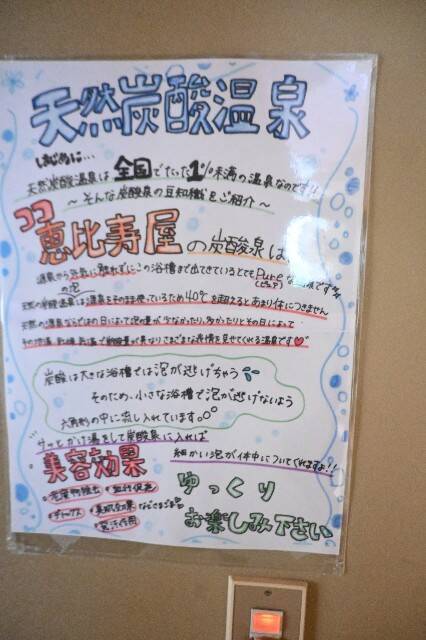 天然炭酸温泉
はじめに…
天然炭酸温泉は全国でたった1%未満の温泉なのです!!
～そんな炭酸泉の豆知識をご紹介～
ココ恵比寿屋の炭酸泉は
源泉から空気に触れずにこの浴槽まで出てきているとてもPureな
(ピュア)
の泡
天然の炭酸温泉は源泉をそのまま使っているため40℃を超えるとあまり体につきません
天然の温泉ならではの日によって泡の量が少なかったり、多かったりとその日によって
異なりさまざまな表情を見せてくれる温泉です♡
炭酸は大きな浴槽では泡が逃げちゃう
そのため、小さな浴槽で泡が逃げないよう
六角形の中に流し入れています。
サッとかけ湯をして炭酸泉に入れば
細かい泡が体中についてくれますよ!!
美容効果
・老廃物排出 ・血行促進
・デトックス ・美肌効果 などさまざま
ゆっくり
お楽しみ下さい